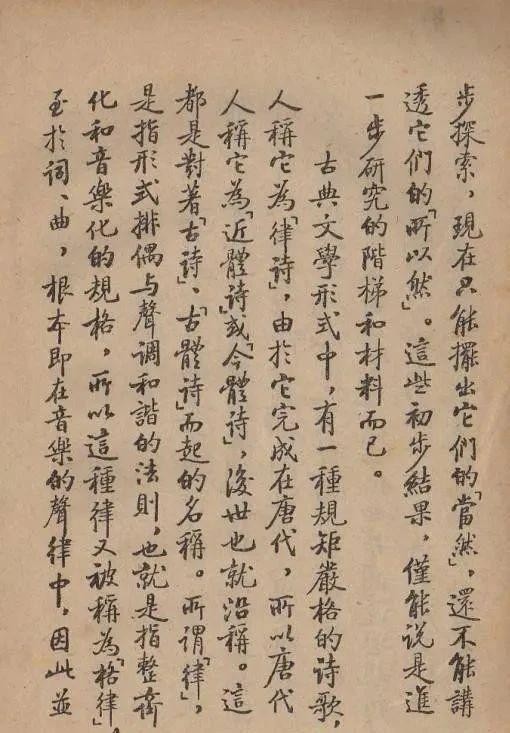 步探索，現在只能擺出它們的「當然」，還不能講
透它們的「所以然」。這些初步結果，僅能說是進
一步研究的階梯和材料而已。
古典文學形式中，有一種規矩嚴格的诗歌，
人稱它為「律诗」，由於它完成在唐代，所以唐代
人稱它為「近體诗」或「今體诗」，後世也就沿稱。這
都是對著「古诗」、「古體诗」而起的名稱。所謂「律」，
是指形式排偶与聲调和諧的法則，也就是指整齊
化和音樂化的規格，所以這種律又被稱為「格律」，
至於词、曲，根本即在音樂的聲律中，因此並